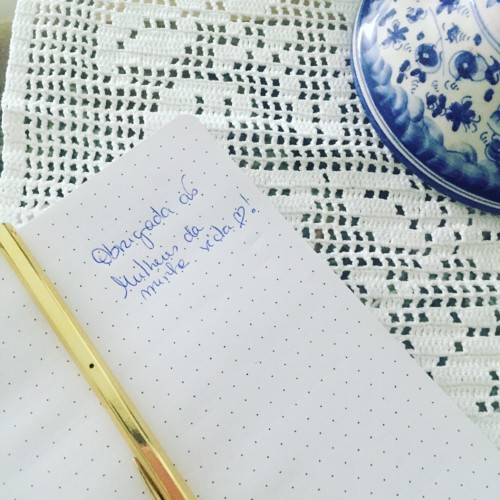 Obrigada às
Mulheres da
minha vida ♡!